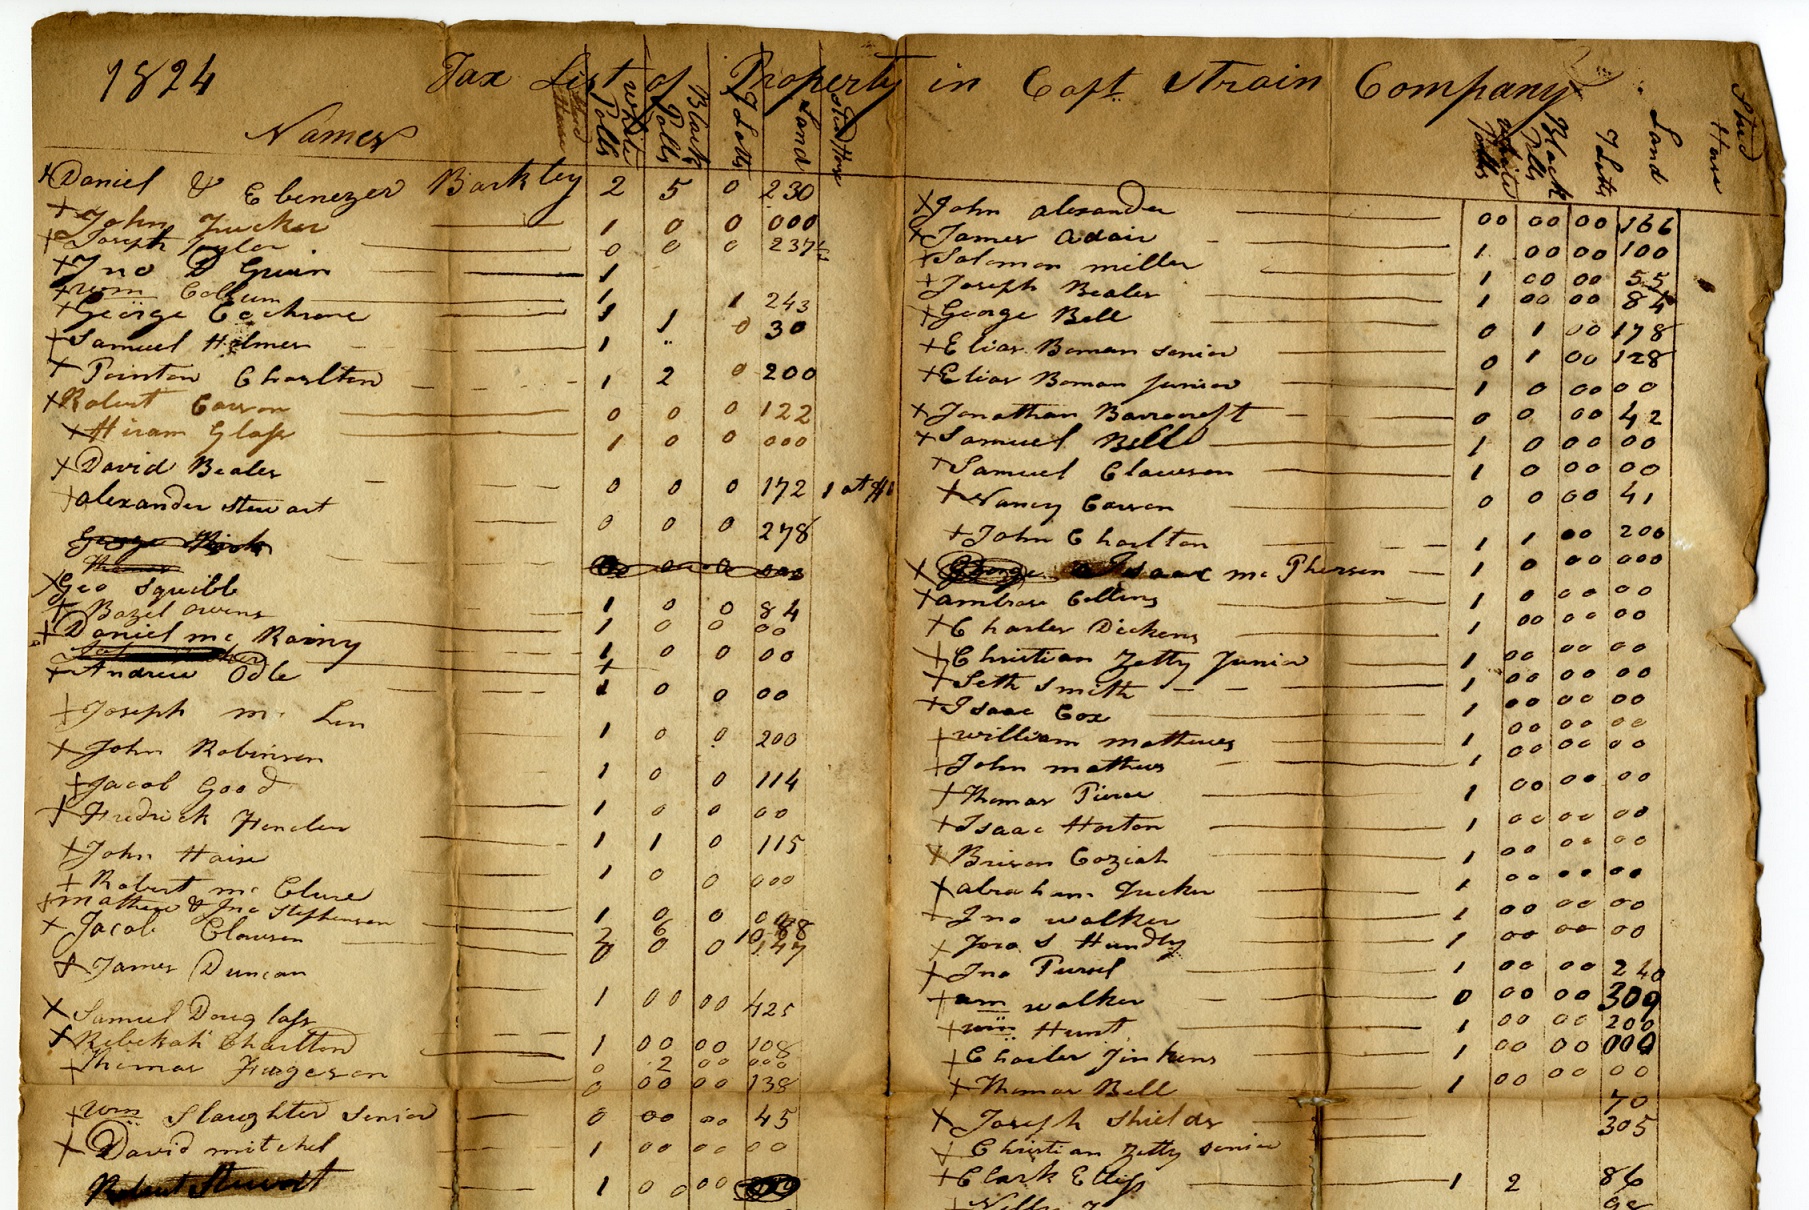 1824 Tax List of Property in Capt. Strain Company
Names
White Polls Black Polls T Lotts Land Stud Horse
White Polls Black Polls T Lotts Land Stud Horse
Daniel & Ebenezer Barkley 2 5 0 230
John Tucker 1 0 0 000
Joseph Taylor 0 0 0 237
Jno D Guin 1
Wm Collum 1 1 243
George Cochrane 1 1 0 30
Samuel Holmes 1
Pointon Charlton 1 2 0 200
Robert Carson 0 0 0 122
Hiram Glass 1 0 0 000
David Bealer 0 0 0 172 1 at
Alexander Stewart 0 0 0 278
George
Thomas
Geo Squibb 1 0 0 84
Bazel Owens 1 0 0 00
Daniel mc Rainy 1 0 0 00
Andrew Odle 1 0 0 00
Joseph mc Lin 1 0 0 200
John Robinson 1 0 0 114
Jacob Good 1 0 0 00
Fredrick 1 1 0 115
John Hair 1 0 0 000
Robert mc Clure 1 0 0
Mathew & Jno Stephenson 6
Jacob Clawson 0 0 0 147
James Duncan 1 00 00 425
Samuel Douglass 1 00 00 108
Rebekah Charlton 0 2 00 000
Thomas Furgeson 0 00 00 138
Wm Slaughter Senior 0 00 00 45
David mitchel 1 00 00 00
Robert Stewart 1 0 00 00
John Alexander 00 00 00 166
James Adair 1 00 00 100
Solomon miller 1 00 00 55
Joseph Bealer 1 00 00 84
George Bell 0 1 00 178
Elias Boman Senior 0 1 00 128
Elias Boman Junior 1 0 00 00
Jonathan Barrocroft 0 0 00 42
Samuel Bell 1 0 00 00
Samuel Clawson 1 0 00 00
Nancy Carson 0 0 00 41
John Charlton 1 1 00 200
George Isaac mc Pherson 1 0 00 000
Ambrose Collins 1 0 00 00
Charles Dickens 1 00 00 00
Christian Zetty Junior 1 00 00 00
Seth Smith 1 00 00 00
Isaac Cox 1 00 00 00
William mathews 1 00 00 00
John mathews 1 00 00 00
Thomas Pierce 1 00 00 00
Isaac Horton 1 00 00 00
Brison Coziah 1 00 00 00
Abraham Tucker 1 00 00 00
Jno walker 1 00 00 00
S Hundly 1 00 00 00
Jno Pursel 1 00 00 240
walker 0 00 00 309
Wm Hunt 1 00 00 200
Charles Jinkens 1 00 00 000
Thomas Bell 1 00 00 00
Joseph Shields 70
Christian Zetty Senior 305
Clark Elliss 1 2 86